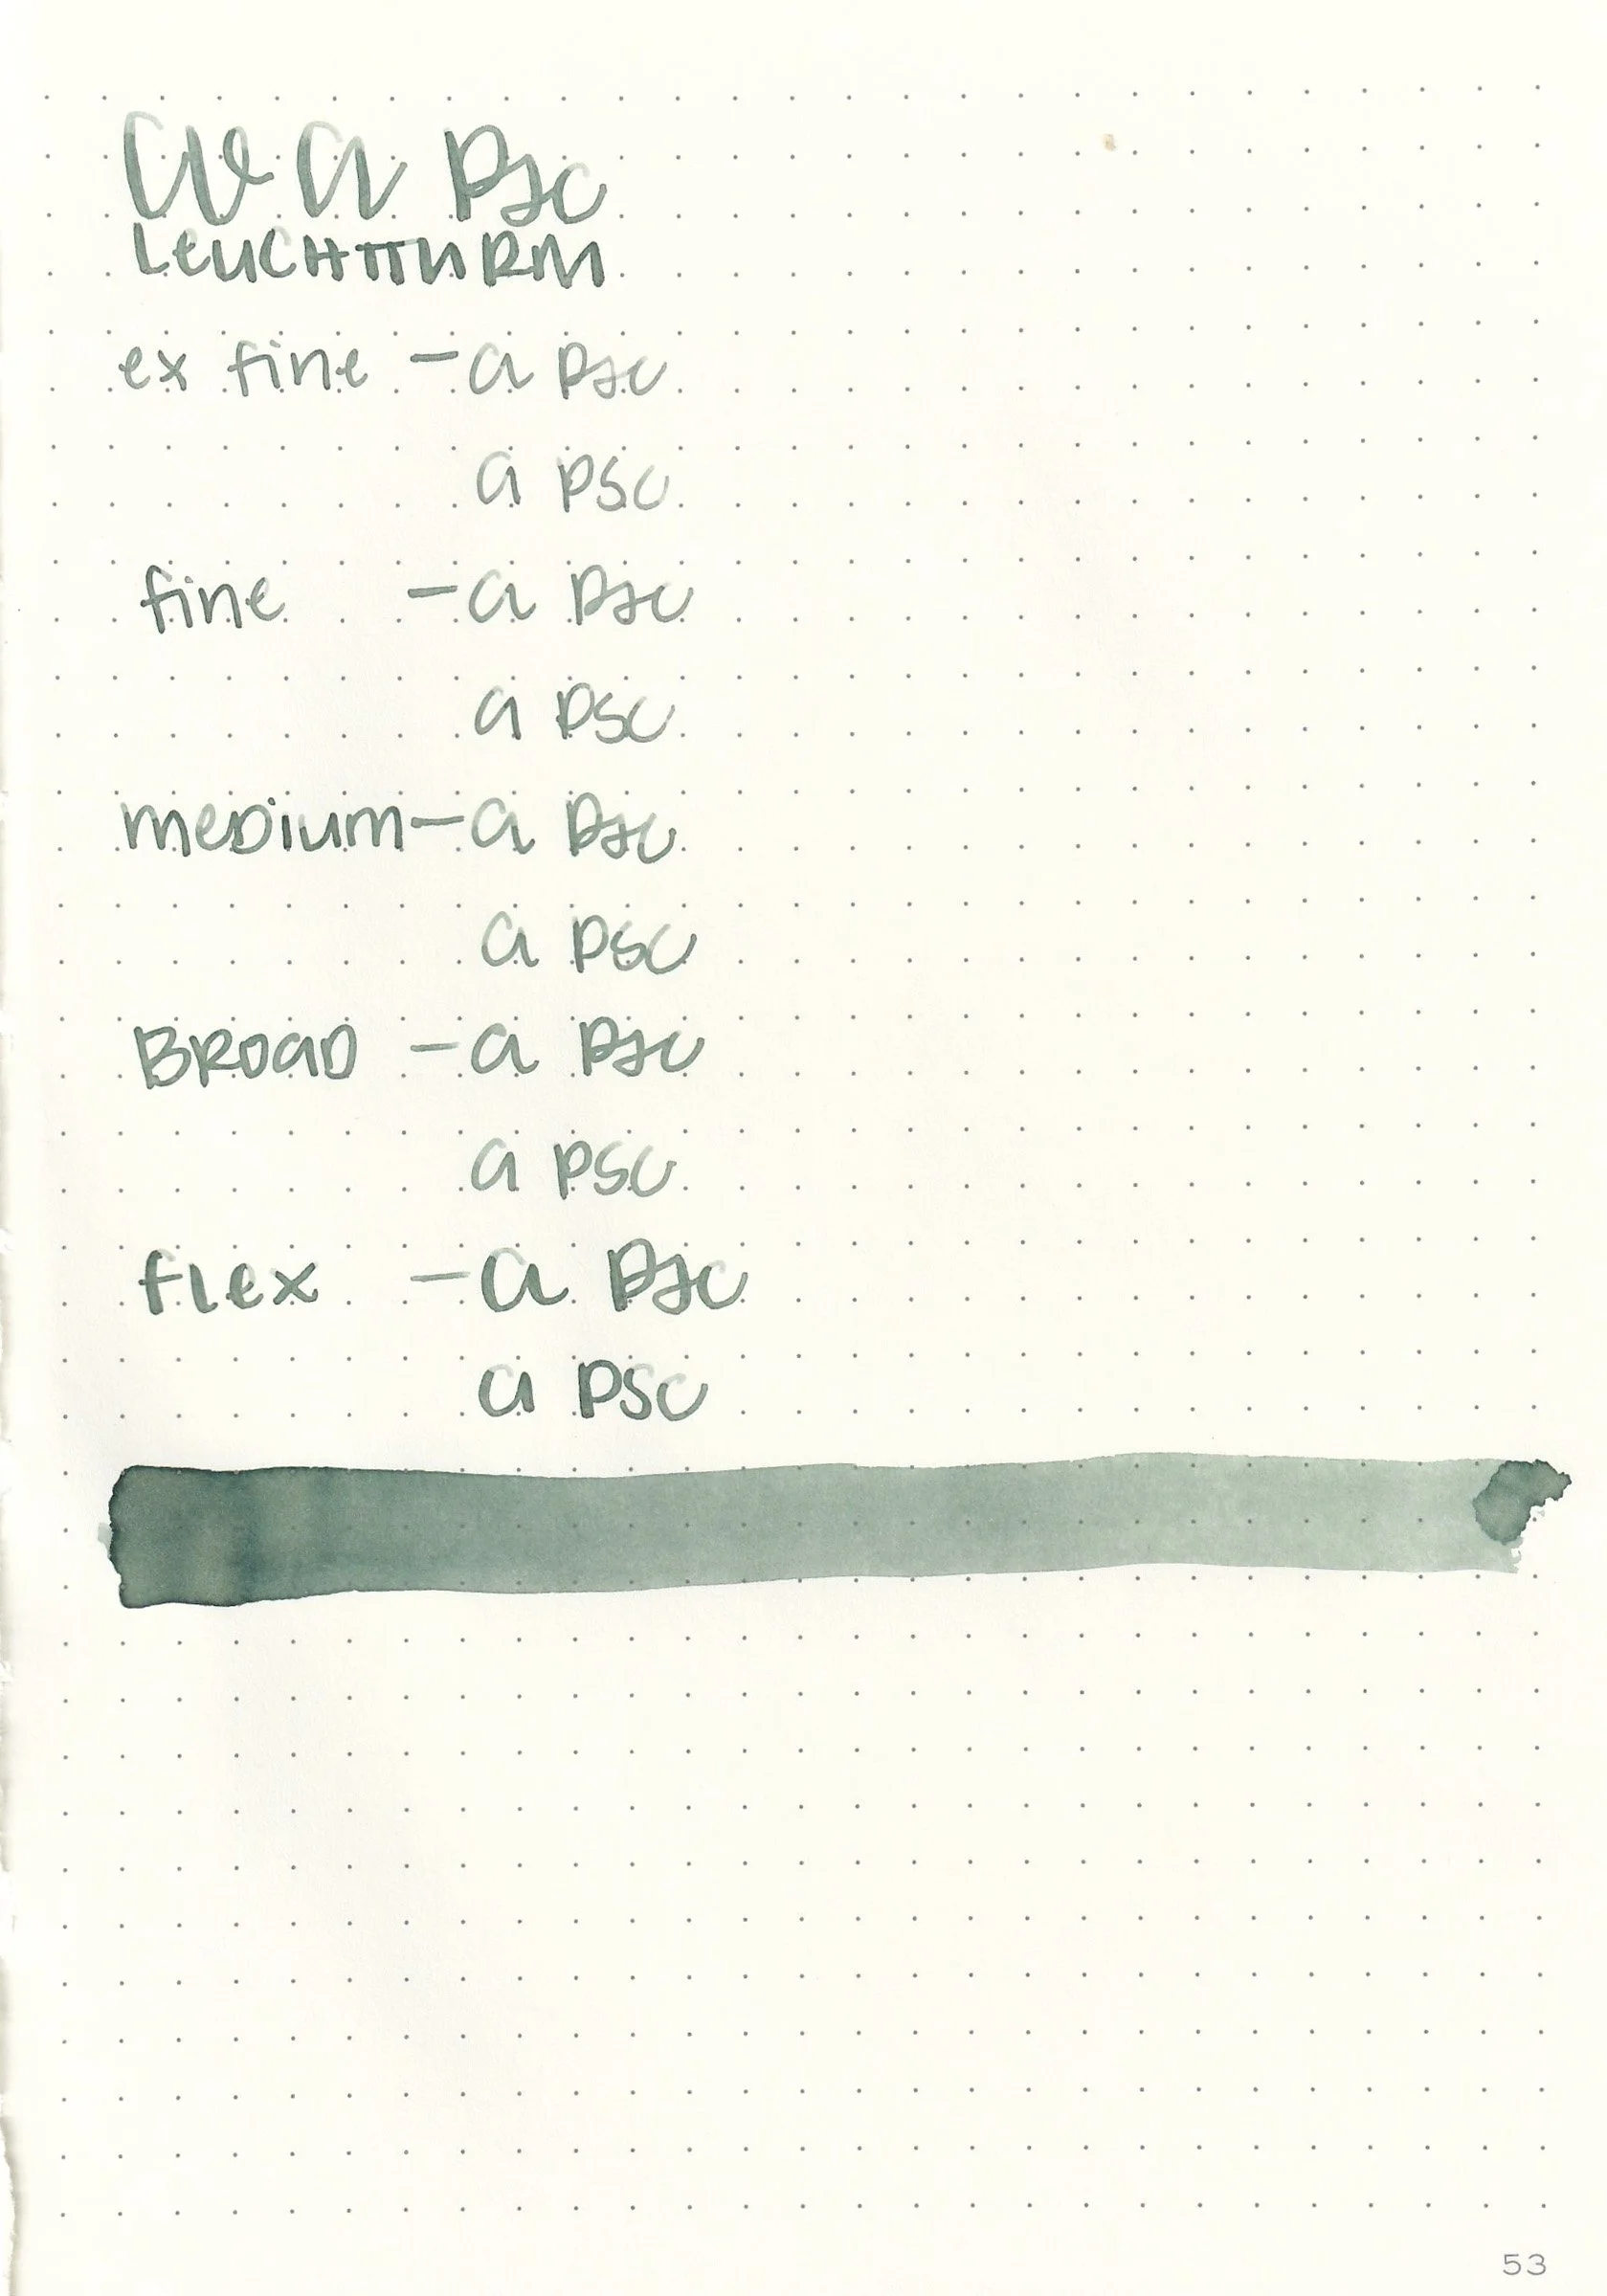 W a psc
LEUCHTTURM
ex fine - a psc
a psc
fine - a psc
a psc
medium - a psc
a psc
BROAD - a psc
a psc
flex - a psc
a psc
53